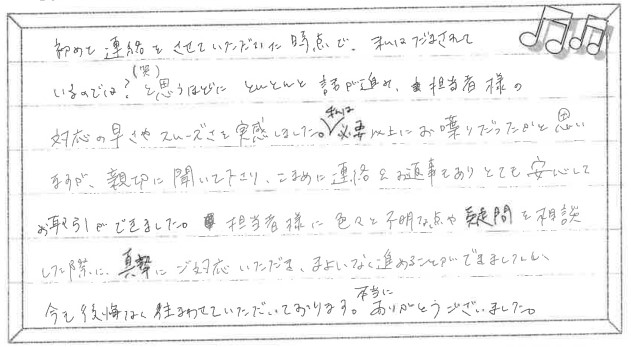 初めて連絡をさせていただいた時点で、私はだまされて
いるのでは?(笑)と思うほどに とんとんと 話が進み、担当者様の
対応の早さやスムーズさを実感しました。私は必要以上にお喋りだったかと思い
ますが、親切に聞いて下さり、こまめに連絡&お返事もありとても安心して
お取引ができました。担当者様に色々と不明な点や疑問を相談
した際に、真摯にご対応いただき、まよいなく進めることができましたし、
今も後悔なく住まわせていただいております。本当にありがとうございました。